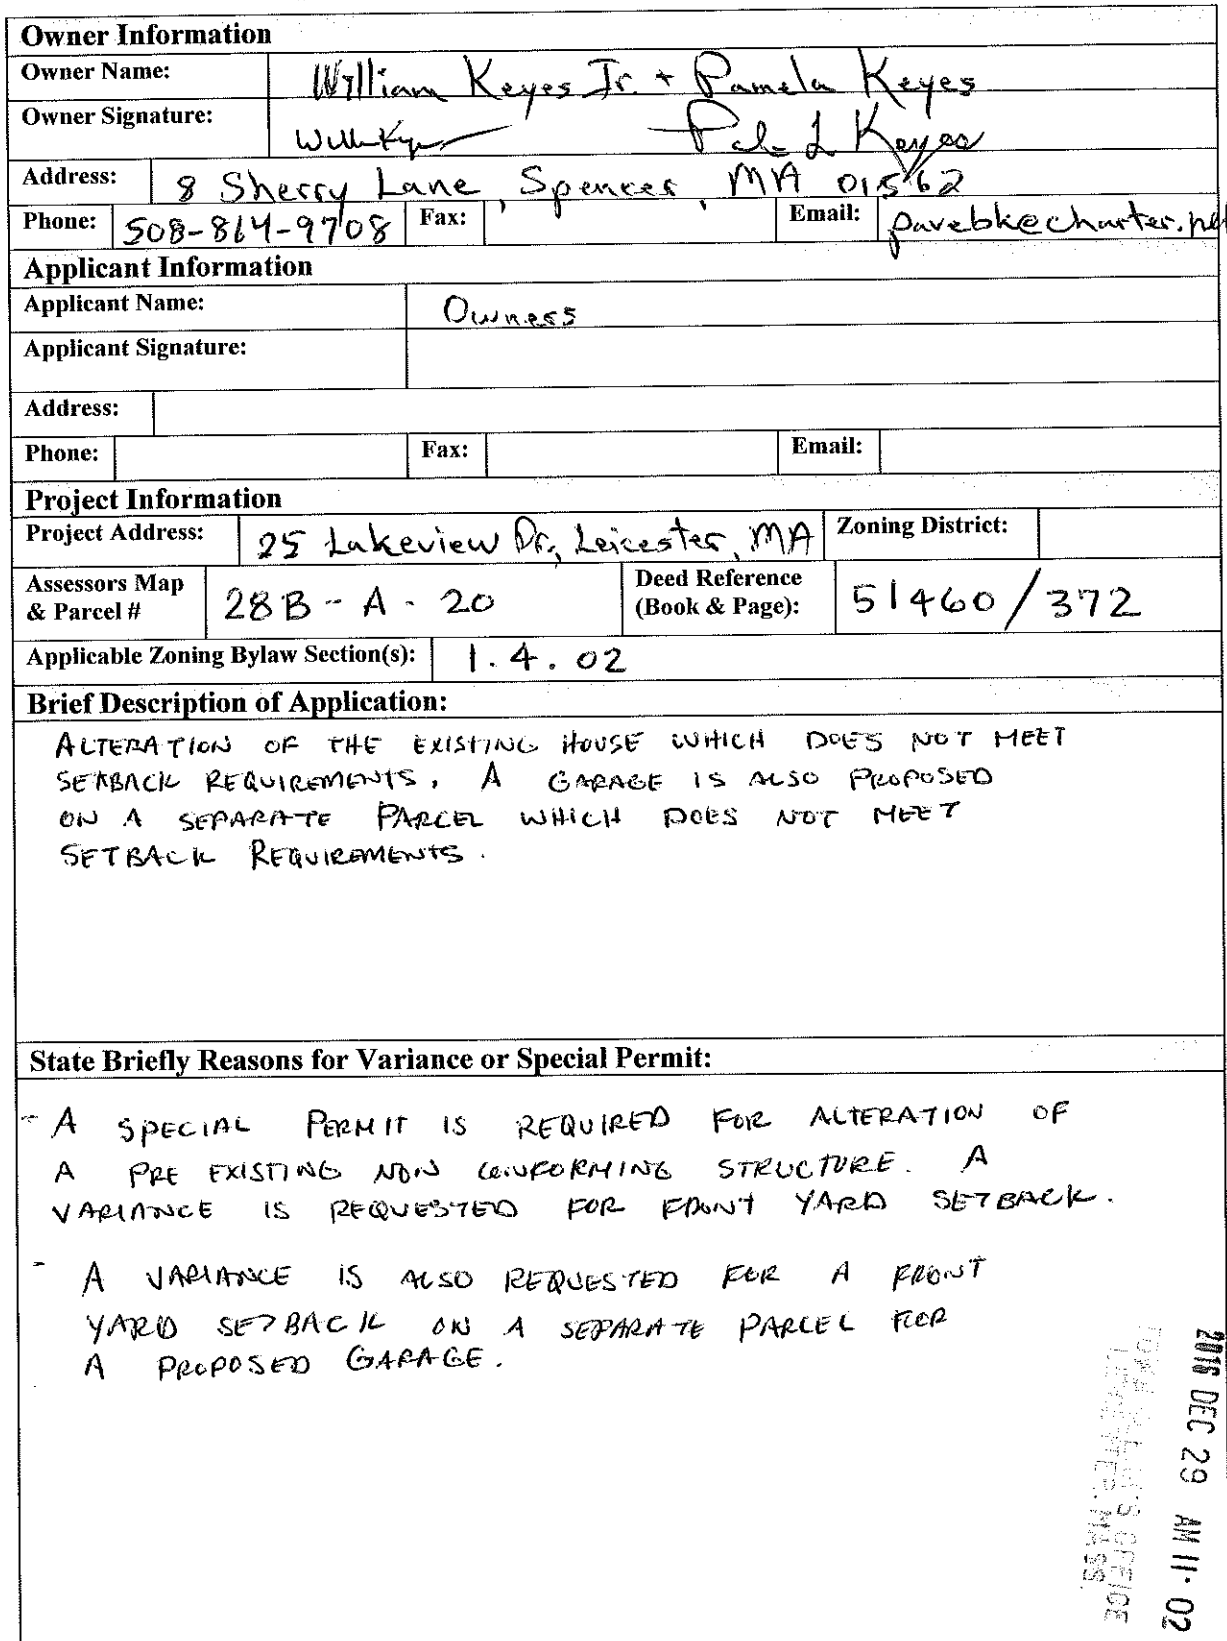 Owner Information
Owner Name: William Keyes Jr. + Pamela Keyes
Owner Signature: Keyes
Address: 8 Sherry Lane, Spencer, MA 01562
Phone: 508-864-9708 Fax: Email: pavebk@charter.net
Applicant Information
Applicant Name: Owners
Applicant Signature:
Address:
Phone: Fax: Email:
Project Information
Project Address: 25 Lakeview Dr., Leicester, MA Zoning District:
Assessors Map & Parcel # 28B - A - 20 Deed Reference (Book & Page): 51460/372
Applicable Zoning Bylaw Section(s): 1.4.02
Brief Description of Application:
ALTERATION OF THE EXISTING HOUSE WHICH DOES NOT MEET
SETBACK REQUIREMENTS. A GARAGE IS ALSO PROPOSED
ON A SEPARATE PARCEL WHICH DOES NOT MEET
SETBACK REQUIREMENTS.
State Briefly Reasons for Variance or Special Permit:
- A SPECIAL PERMIT IS REQUIRED FOR ALTERATION OF
A PRE EXISTING NON CONFORMING STRUCTURE. A
VARIANCE IS REQUESTED FOR FRONT YARD SETBACK.
- A VARIANCE IS ALSO REQUESTED FOR A FRONT
YARD SETBACK ON A SEPARATE PARCEL FOR
A PROPOSED GARAGE.
2016 DEC 29 AM 11:02
TOWN CLERK'S OFFICE
LEICESTER, MASS.